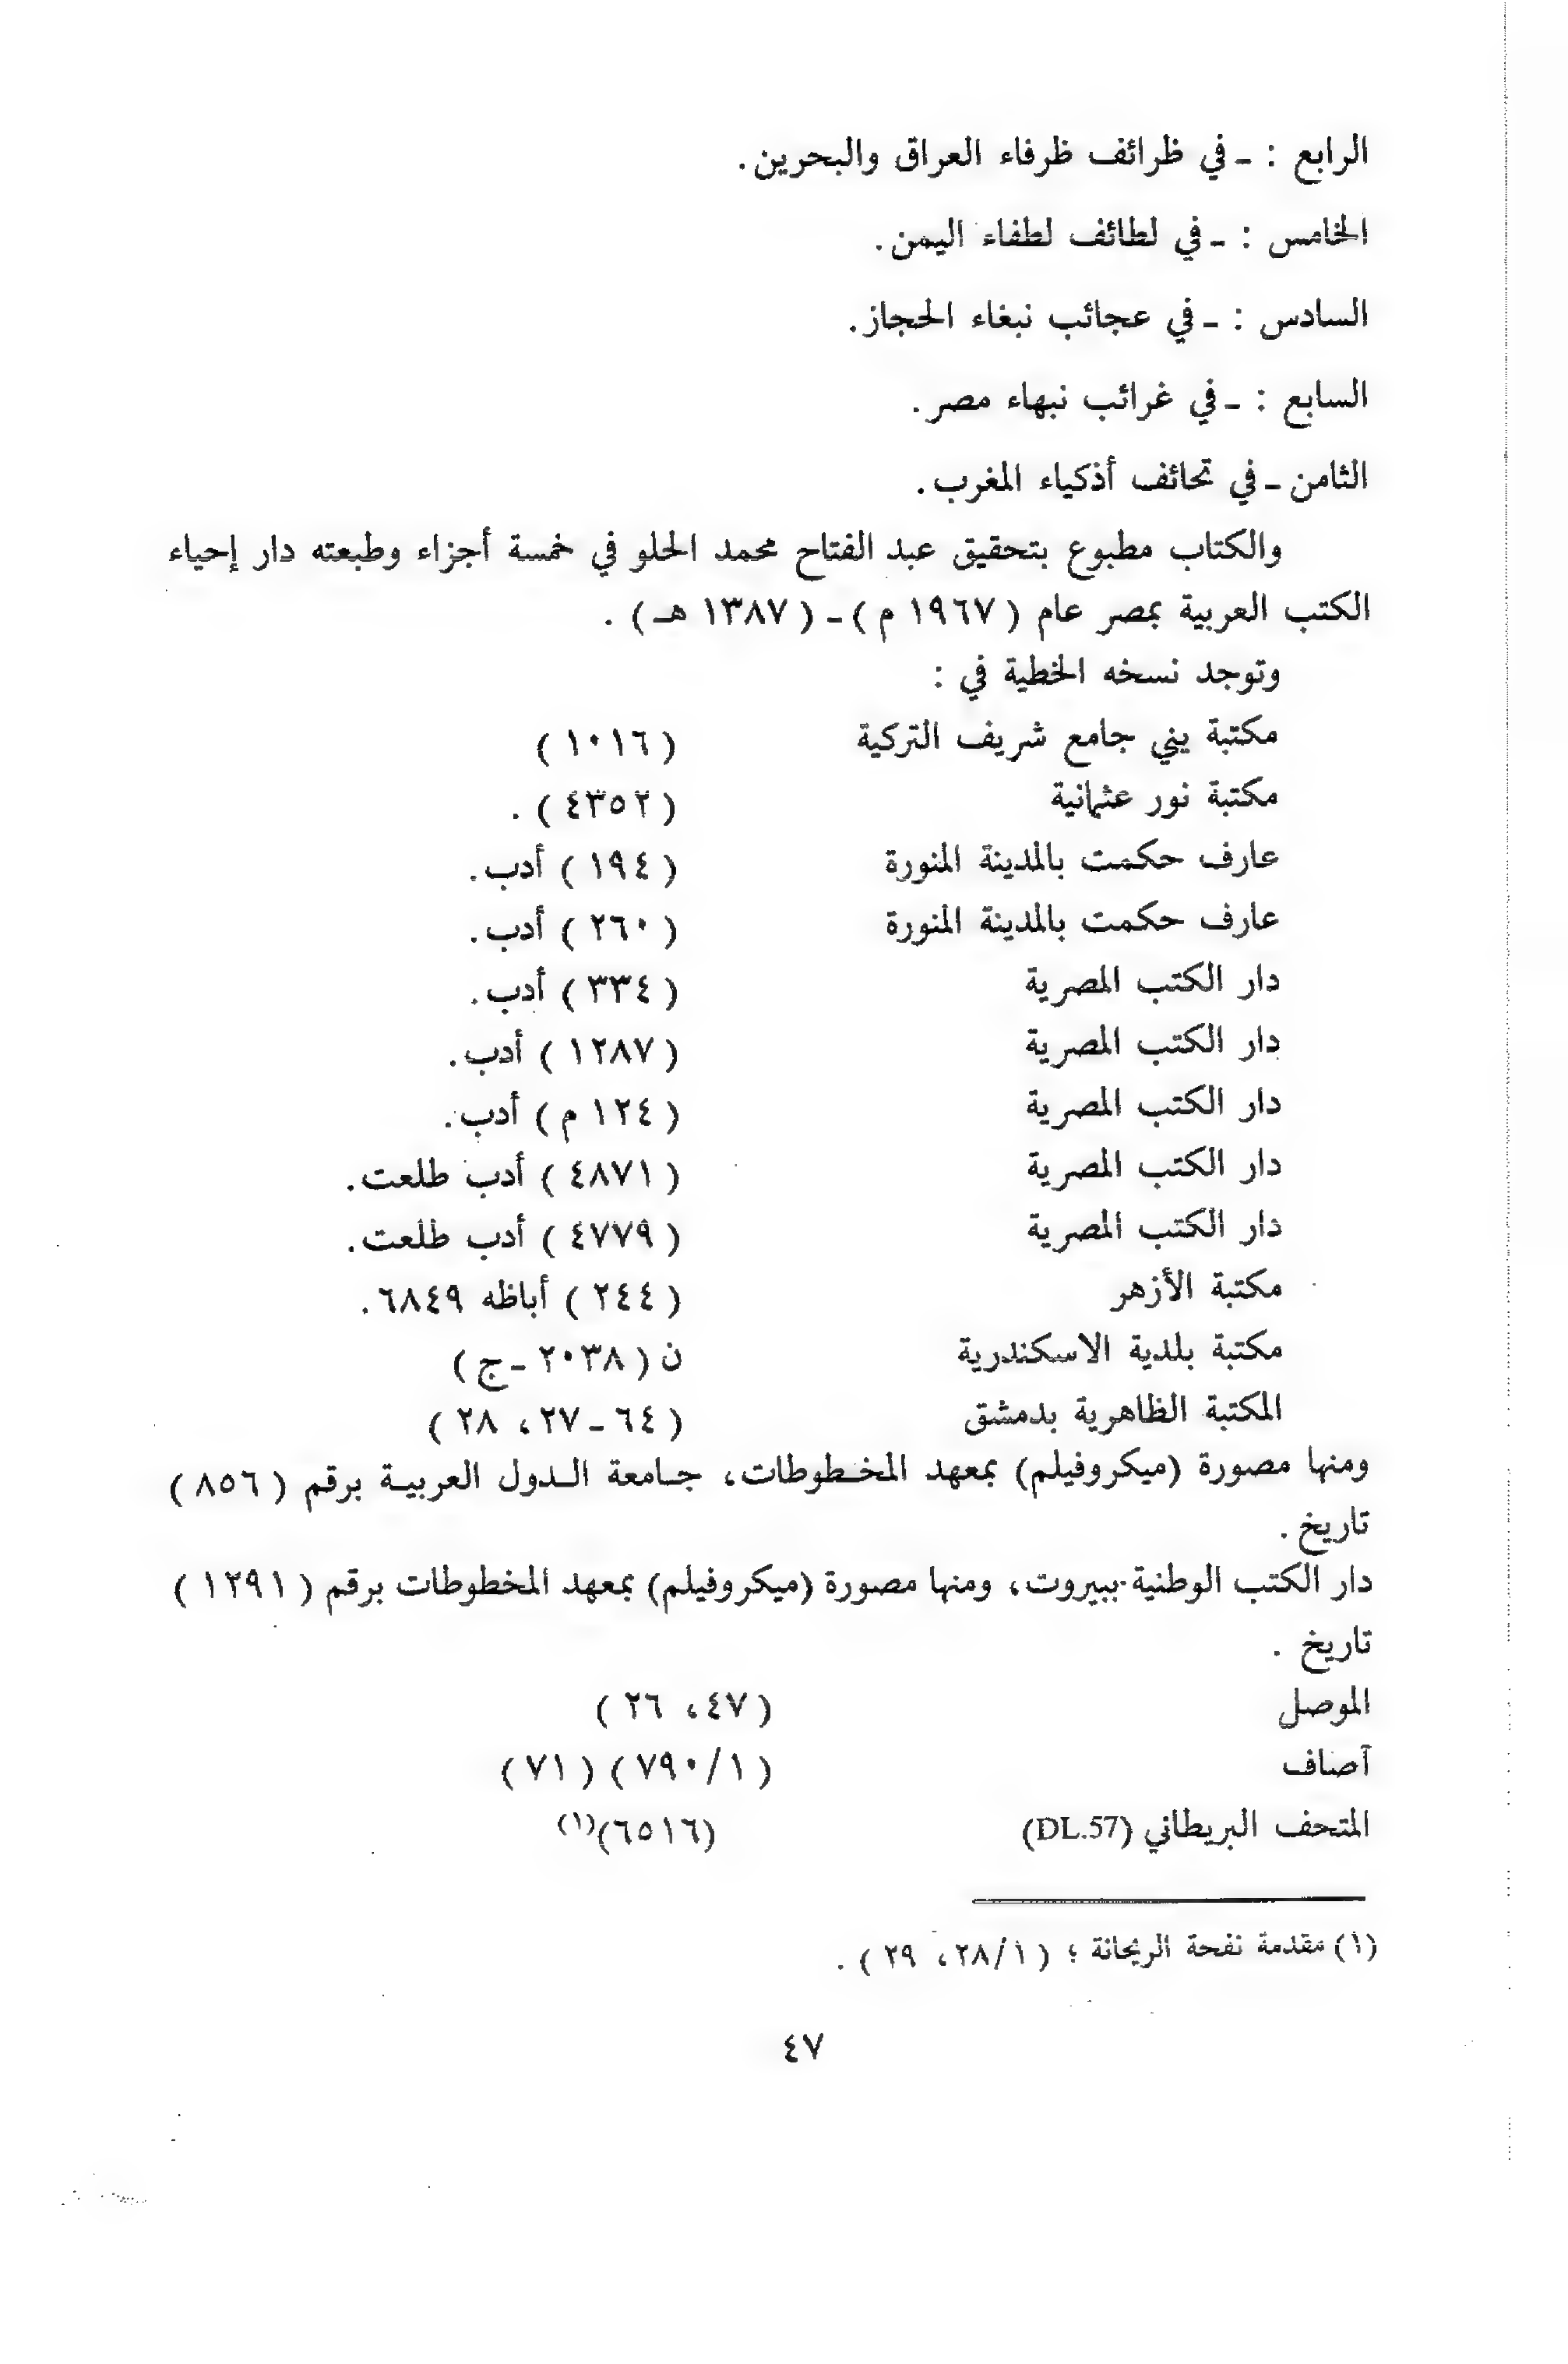 الرابع : ـ في ظرائف ظرفاء العراق والبحرين.
الخامس : ـ في لطائف لطفاء اليمن.
السادس : ـ في عجائب نبغاء الحجاز.
السابع : ـ في غرائب نبهاء مصر.
الثامن ـ في تحائف أذكياء المغرب.
والكتاب مطبوع بتحقيق عبد الفتاح محمد الحلو في خمسة أجزاء وطبعته دار إحياء
الكتب العربية بمصر عام ( ١٩٦٧ م ) ـ ( ١٣٨٧ هـ ) .
وتوجد نسخه الخطية في :
مكتبة يني جامع شريف التركية ( ١٠١٦ )
مكتبة نور عثمانية ( ٤٣٥٢ ) .
عارف حكمت بالمدينة المنورة ( ١٩٤ ) أدب.
عارف حكمت بالمدينة المنورة ( ٢٦٠ ) أدب.
دار الكتب المصرية ( ٣٣٤ ) أدب.
دار الكتب المصرية ( ١٢٨٧ ) أدب.
دار الكتب المصرية ( ١٢٤ م ) أدب.
دار الكتب المصرية ( ٤٨٧١ ) أدب طلعت.
دار الكتب المصرية ( ٤٧٧٩ ) أدب طلعت.
مكتبة الأزهر ( ٢٤٤ ) أباظه ٦٨٤٩.
مكتبة بلدية الاسكندرية ن ( ٢٠٣٨ ـ ج )
المكتبة الظاهرية بدمشق ( ٦٤ ـ ٢٧، ٢٨ )
ومنها مصورة (ميكروفيلم) بمعهد المخـطوطات، جـامعة الـدول العربيـة برقم ( ٨٥٦ )
تاريخ .
دار الكتب الوطنية ببيروت، ومنها مصورة (ميكروفيلم) بمعهد المخطوطات برقم ( ١٢٩١ )
تاريخ .
الموصل ( ٤٧، ٢٦ )
آصاف ( ٧٩٠/١ ) ( ٧١ )
المتحف البريطاني (DL.57) (٦٥١٦)(١)
(١) مقدمة نفحة الريحانة ؛ ( ٢٨/١، ٢٩ ) .
٤٧